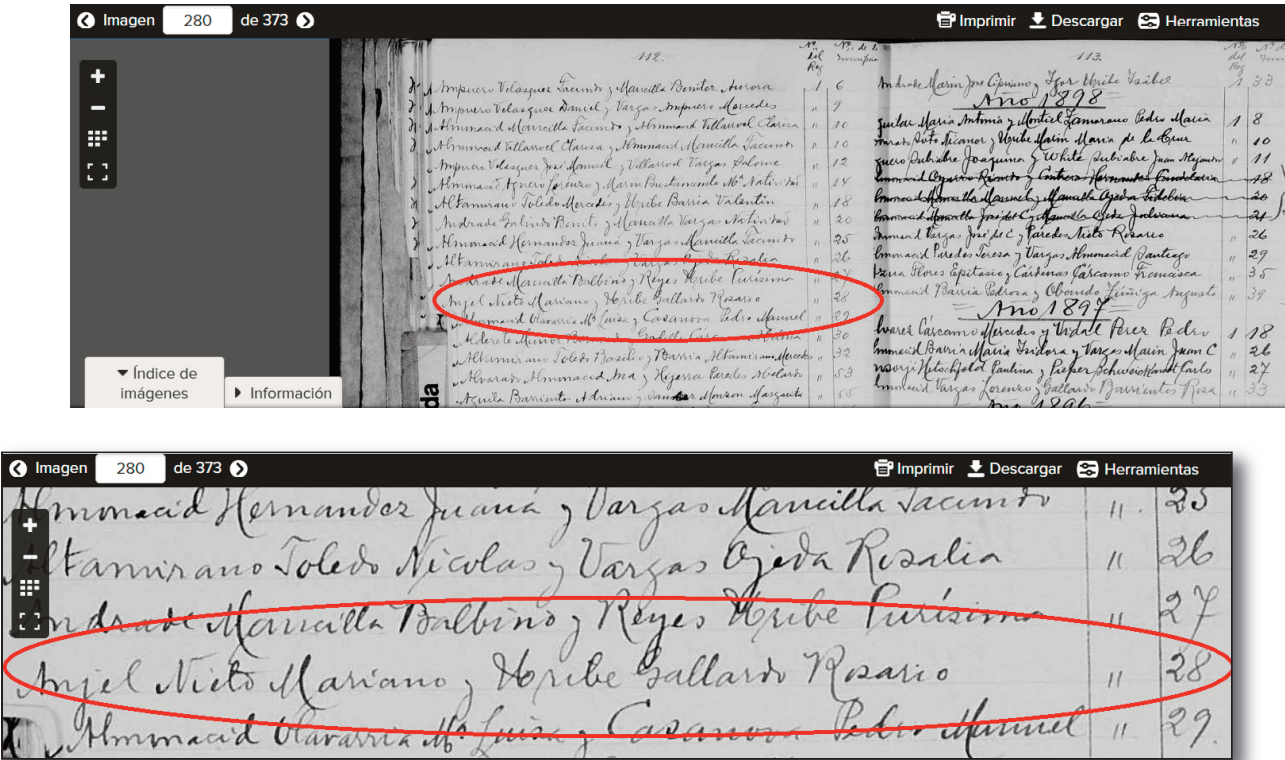 Imagen 280 de 373 Imprimir Descargar Herramientas
112.
Nº del Reg Nº de la
Ampuero Velasquez Facundo y Mancilla Benitez Aurora 1 6
Ampuero Velasquez Daniel y Vargas Ampuero Mercedes " 9
Almonacid Mancilla Facundo y Almonacid Villarroel Clarisa " 10
Almonacid Villarroel Clarisa y Almonacid Mancilla Facundo " 10
Ampuero Velasquez José Manuel y Villarroel Vargas Salome " 12
Almonacid Agüero Lorenzo y Marin Bustamante Mª Natividad " 14
Altamirano Toledo Mercedes y Uribe Barria Valentin " 18
Andrade Galindo Benito y Mancilla Vargas Natividad " 20
Almonacid Hernandez Juana y Vargas Mancilla Facundo " 25
Altamirano Toledo Nicolas y Vargas Ojeda Rosalia " 26
Andrade Mancilla Balbino y Reyes Uribe Purísima " 27
Anjel Nieto Mariano y Uribe Gallardo Rosario " 28
Almonacid Olavarria Mª Luisa y Casanova Pedro Manuel " 29
Alderete Muñoz " 30
Altamirano Toledo Basilio y Barria Altamirano Mercedes " 32
Alvarado Almonacid Ana y Paredes Abelardo " 53
Aguila Barrientos Adriano y Monzon Margarita " 55
113.
Nº del Reg
Andrade Marin José Cipriano y Igor Uribe Isabel 1 33
Año 1898
Maria Antonia y Montiel Zamorano Pedro Maria 1 8
Soto Nicanor y Uribe Marin Maria de la Cruz " 10
Subiabre Joaquina y White Subiabre Juan Alejandro " 11
Oyarzo y Contreras Hernandez Candelaria 18
Mancilla Manuel y Mancilla Ojeda Fidelia 20
Mancilla José del C y Mancilla Ojeda 21
Vargas José del C y Paredes Nieto Rosario " 26
Paredes Teresa y Vargas Almonacid Santiago " 29
Flores Epitasio y Cárdenas Cárcamo Francisca " 35
Barria Pedrosa y Obando Zúñiga Augusto " 39
Año 1897
Cárcamo Mercedes y Vidal Perez Pedro 1 18
Barria Maria Isidora y Vargas Marin Juan C " 26
Paulina y Carlos " 27
Vargas Lorenzo y Gallardo Barrientos Rosa " 33
Año 1896
Índice de imágenes
Información
Imagen 280 de 373 Imprimir Descargar Herramientas
Almonacid Hernandez Juana y Vargas Mancilla Facundo " 25
Altamirano Toledo Nicolas y Vargas Ojeda Rosalia " 26
Andrade Mancilla Balbino y Reyes Uribe Purísima " 27
Anjel Nieto Mariano y Uribe Gallardo Rosario " 28
Almonacid Olavarria Mª Luisa y Casanova Pedro Manuel " 29.